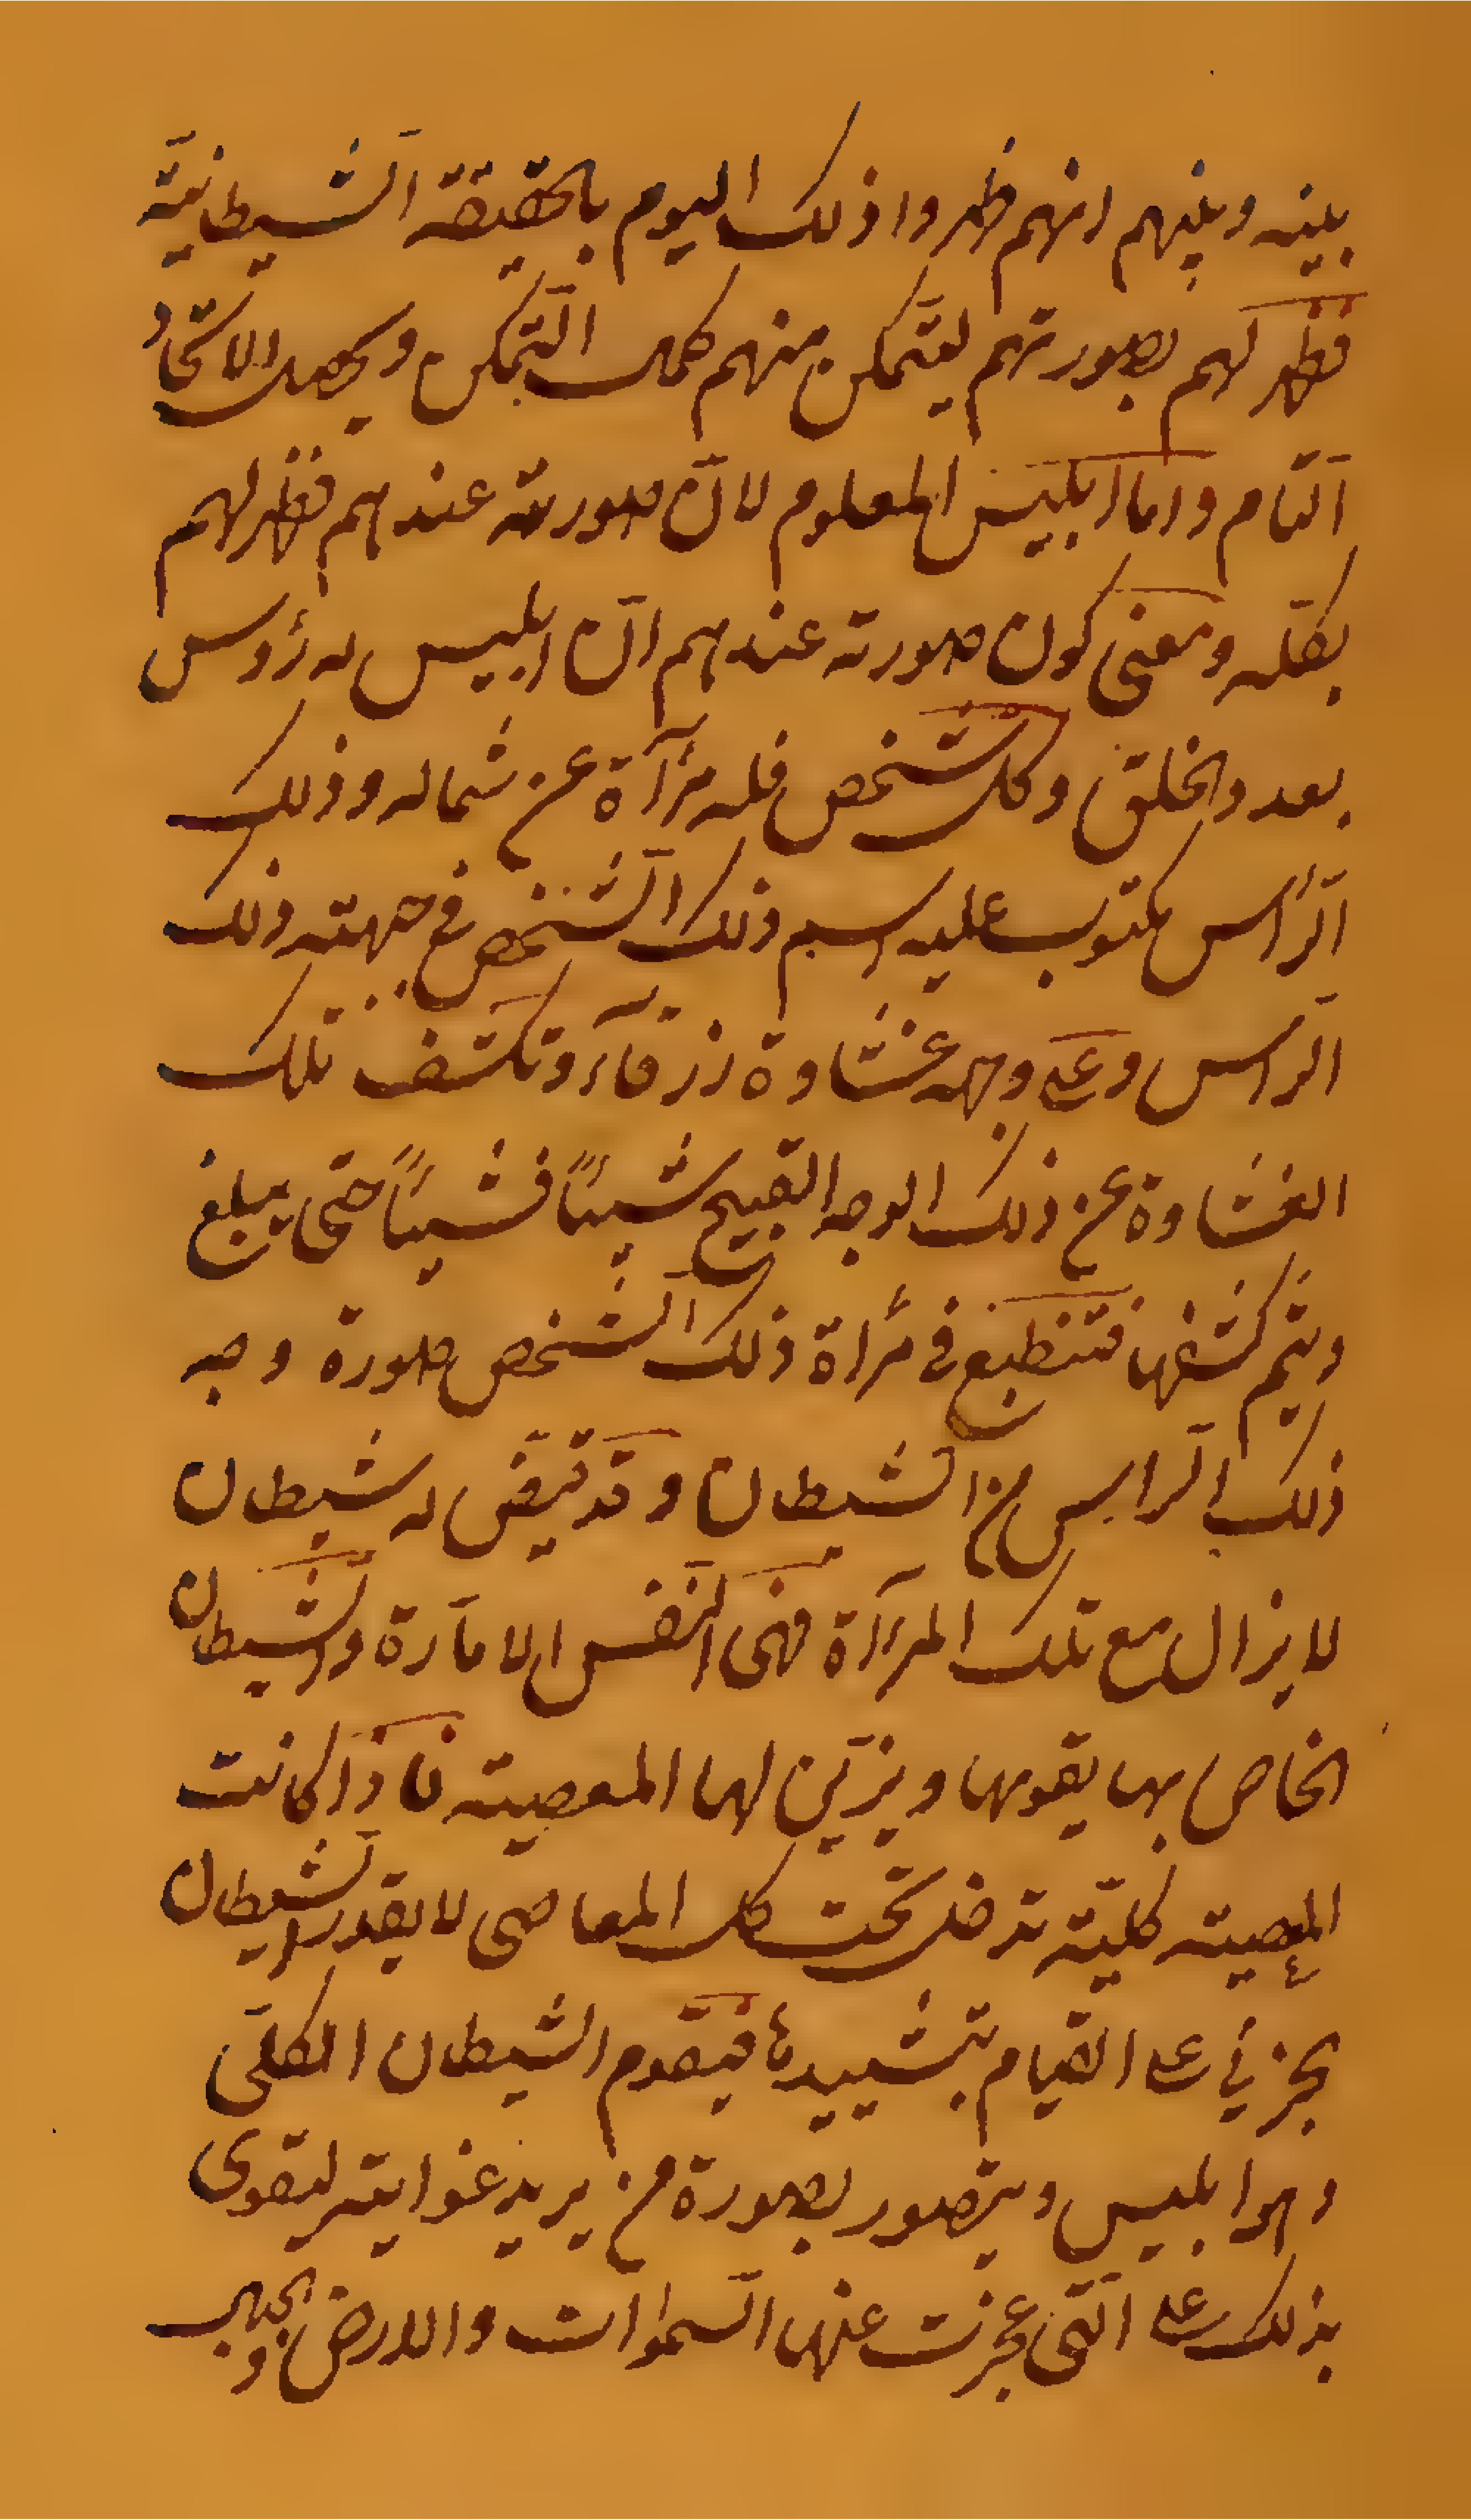 بينه وبينهم انهم ظهروا ذلك اليوم بالحقيقة الشيطانيّة
فظهر لهم بصورتهم ليتمكن منهم كمال التّمكن ويحصل الاتّحاد
التّام واما ابليس المعلوم لانّ صورته عندهم فظهر لهم
بكلّه ومعنى كون صورته عندهم انّ ابليس له رؤس
بعدد الخلق وكل شخص فله مرآة عن شماله وذلك
الرّأس مكتوب عليه اسم ذلك الشّخص في جهته ذلك
الرّأس وعلى وجهه غشاوة زرقآء وتكشف تلك
الغشاوة عن ذلك الوجه القبيح شيئاً فشيئاً حتى يبلغ
ويتم كشفها فتنطبع في مرأة ذلك الشخص صورة وجه
ذلك الرّاس من الشيطان وقد تقيّض له شيطان
لا يزال مع تلك المرآة فهى النّفس الامّارة والشّيطان
الخاص بها يقومها ويزيّن لها المعصية فاذا كانت
المعصية كليّة تدخل تحت كل المعاصى لا يقدر الشّيطان
الجزئي على القيام بتشييدها فيقوم الشيطان الكلّى
وهو ابليس ويتصور بصورة من يريد غوايته ليقوى
بذلك على الّتى عجزت عنها السّموات والارض والجبال